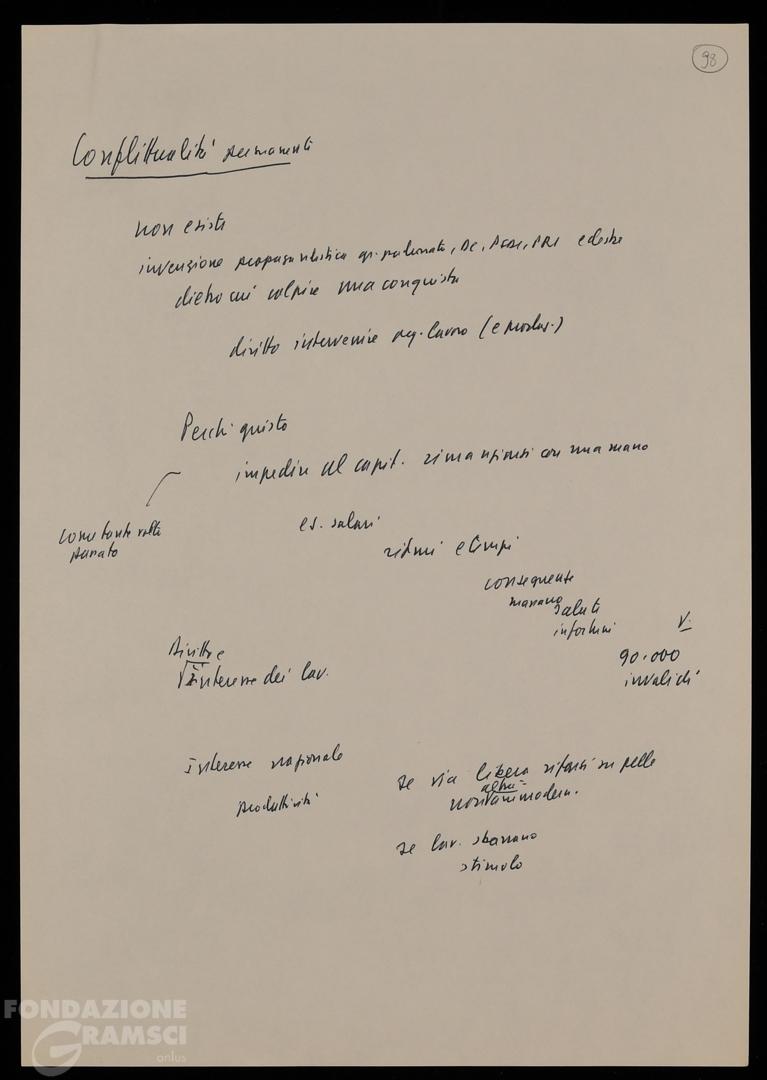 98
Conflittualità permanente
non esiste
invenzione propagandistica gr. padronato, DC, PSDI, PRI e destre
dietro cui colpire una conquista
diritto intervenire org. lavoro (e produz.)
Perché questo
impedire al capit. rimangiarsi con una mano
come tante volte
passato
es. salari
ritmi e tempi
conseguente
salute
infortuni
V.
90.000
invalidi
diritto e
interesse dei lav.
Interesse nazionale
produttività
se via libera rifarsi su pelle
altrui
non ammodern.
se lav. sbarrano
stimolo
FONDAZIONE
GRAMSCI
onlus